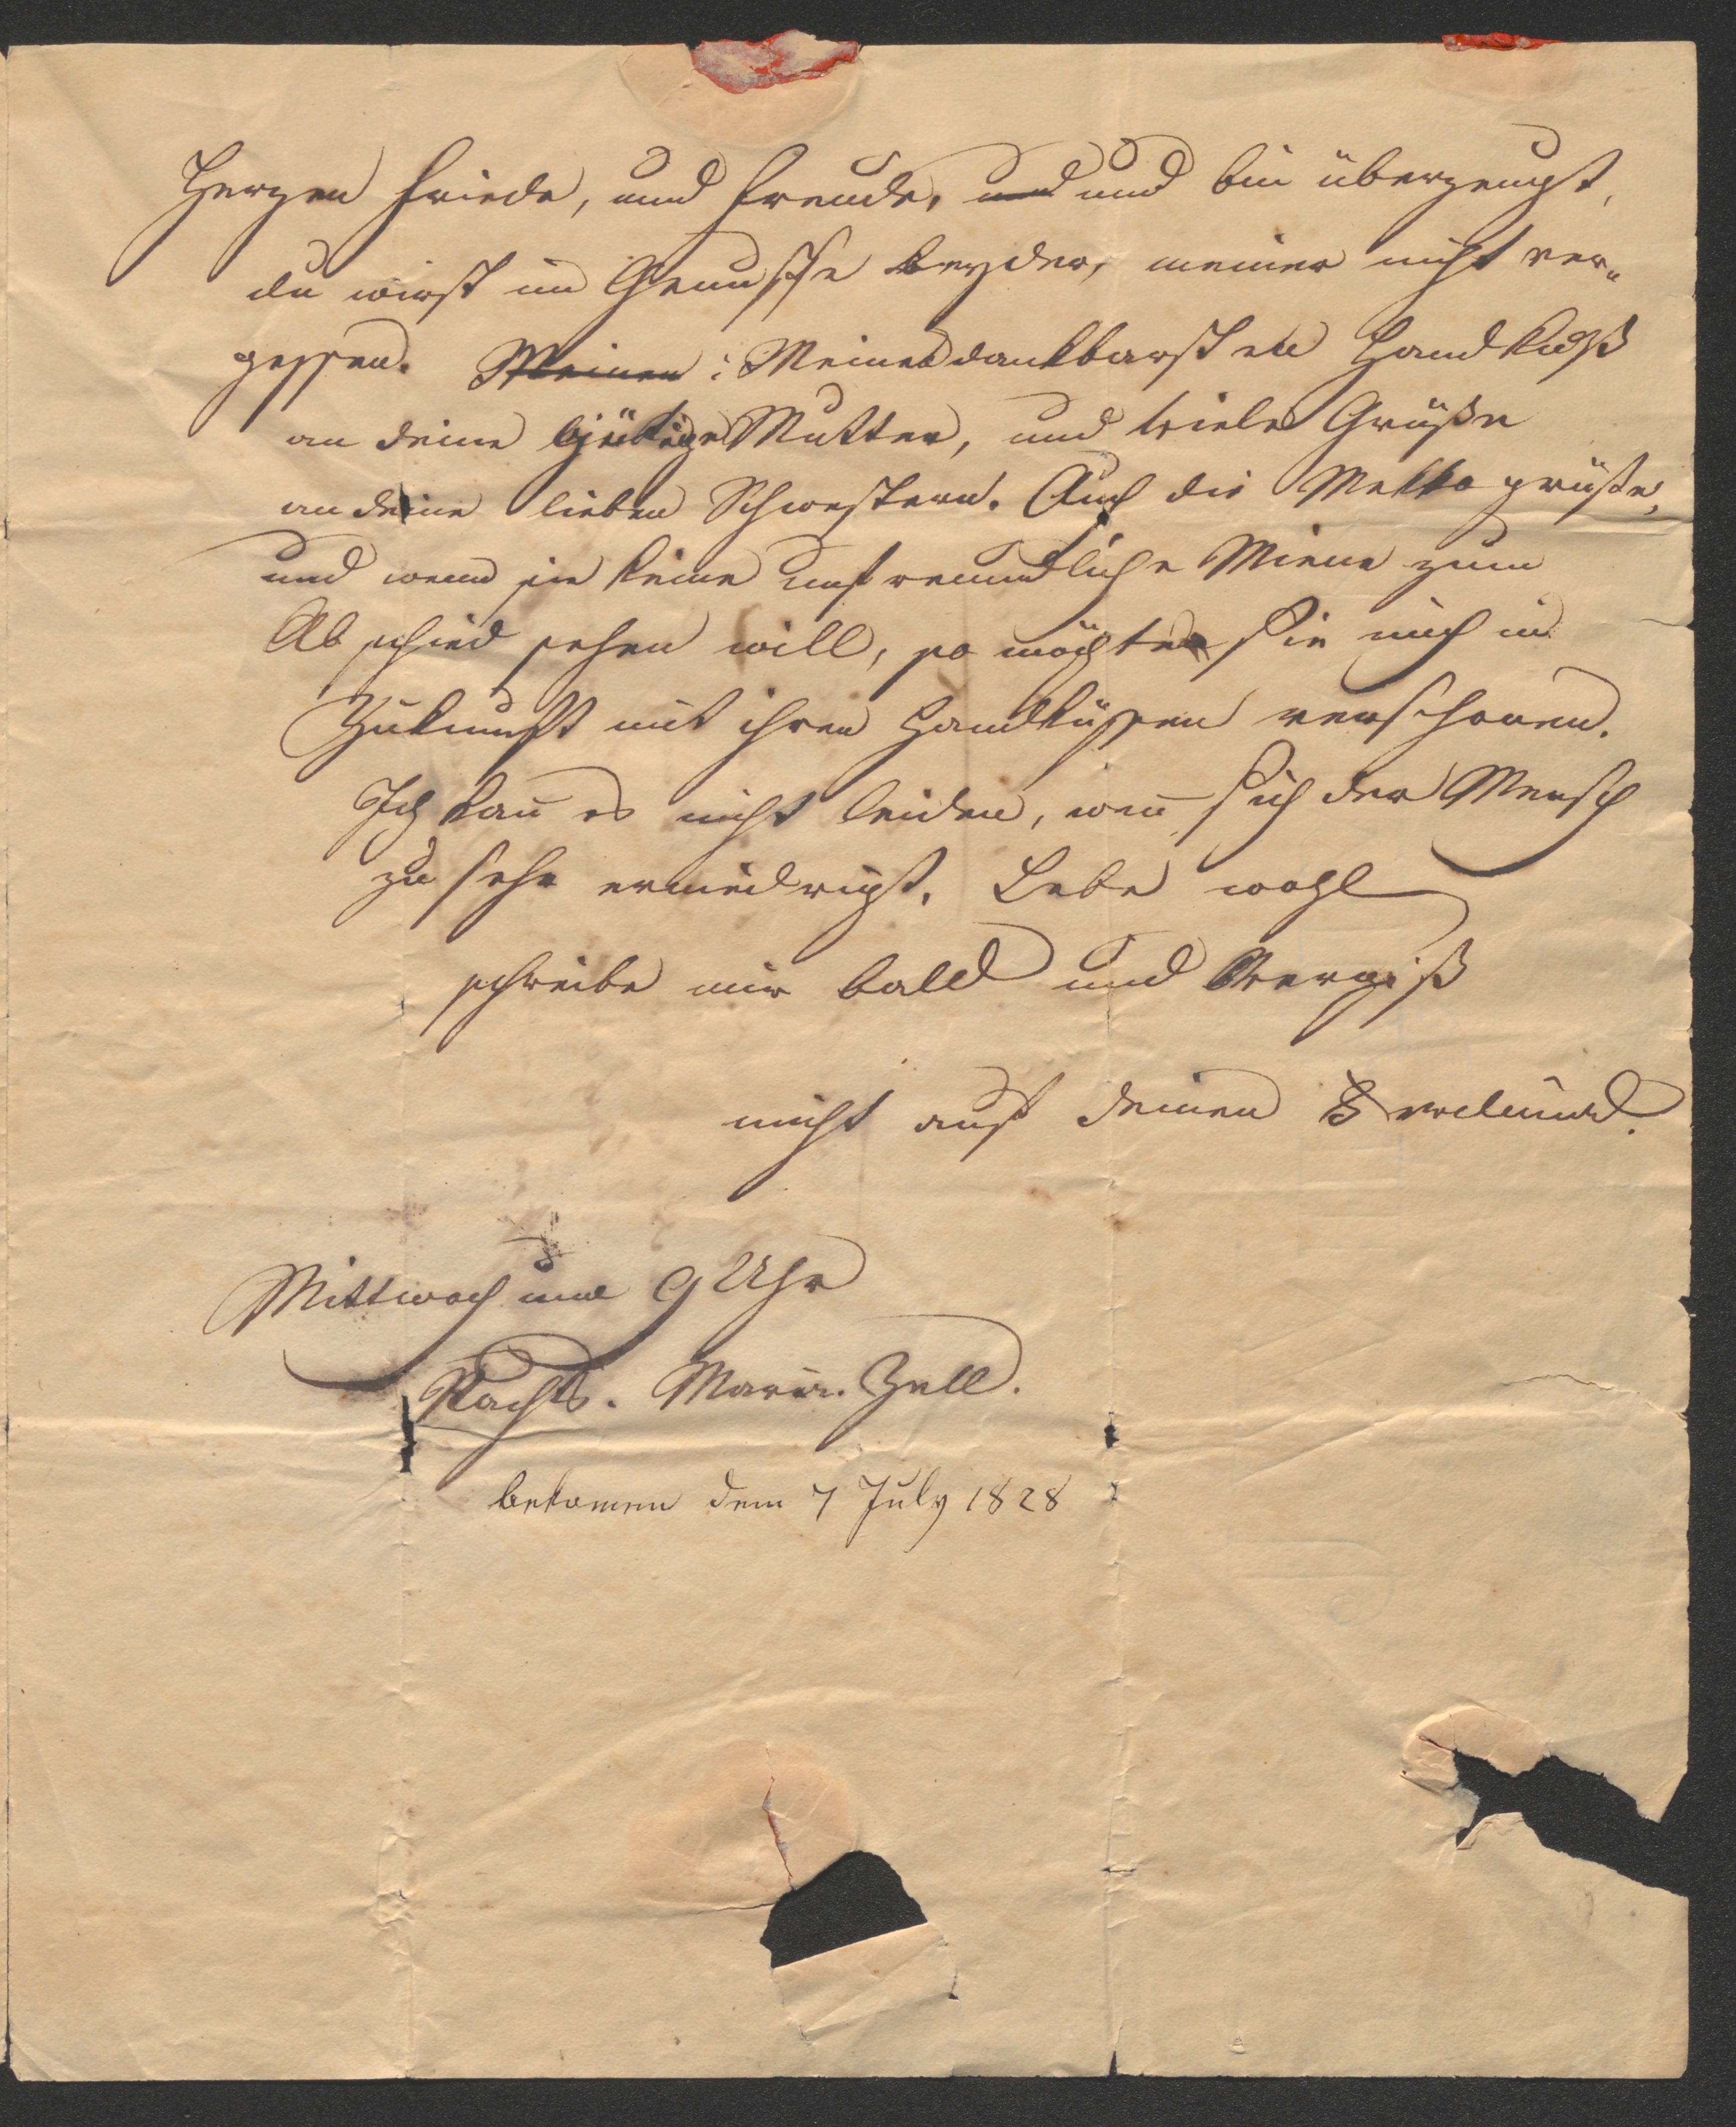 Herzen Friede, und Freude, und und bin überzeugt,
du wirst im Genusse beyder, meiner nicht ver„
gessen. Meinen : Meinen dankbarsten Handkuß
an deine Gütige Mutter, und viele Grüße
an deine lieben Schwestern. Auch die grüße,
und wenn sie keine unfreundliche Miene zum
Abschied sehen will, so möchte sie mich in
Zukunft mit ihren Handküssen verschonen.
Ich kan̄ es nicht leiden, wen̄ sich der Mensch
zu sehr erniedrigt. Lebe wohl
schreibe mir bald und Vergiß
nicht auf deinen
Mittwoch um 9 Uhr
Nachts. Maria. Zell.
bekomen dem 7 July 1828